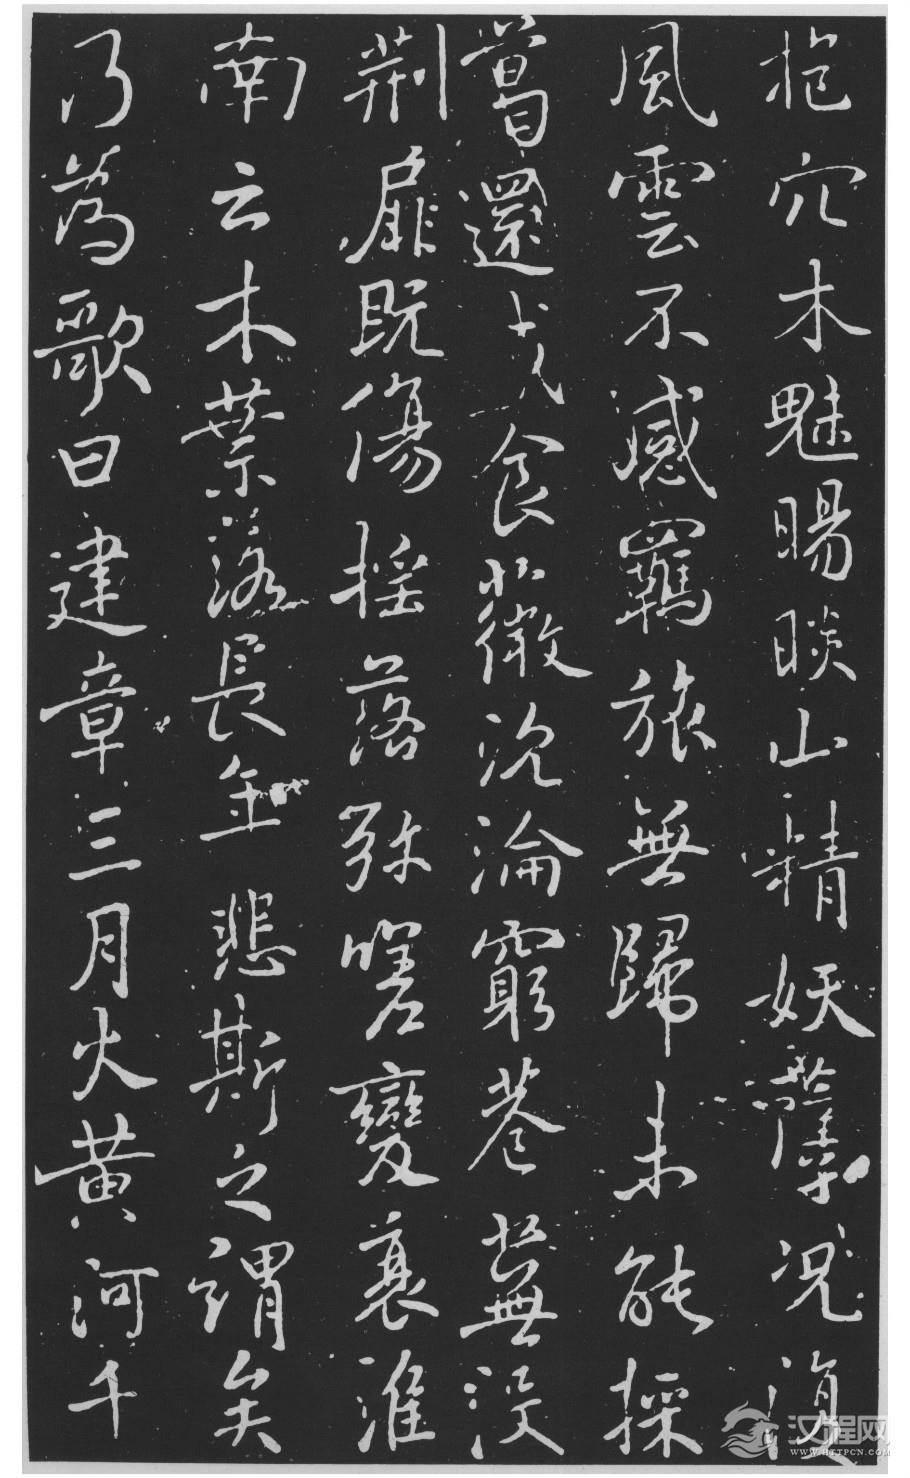 抱穴木魅睗睒山精妖孽況復
風雲不感羈旅無歸未能採
葛還成食薇沉淪窮巷蕪沒
荊扉既傷搖落弥嗟變衰淮
南云木葉落長年悲斯之謂矣
乃為歌曰建章三月火黃河千
汉程网
WWW.HTTPCN.COM